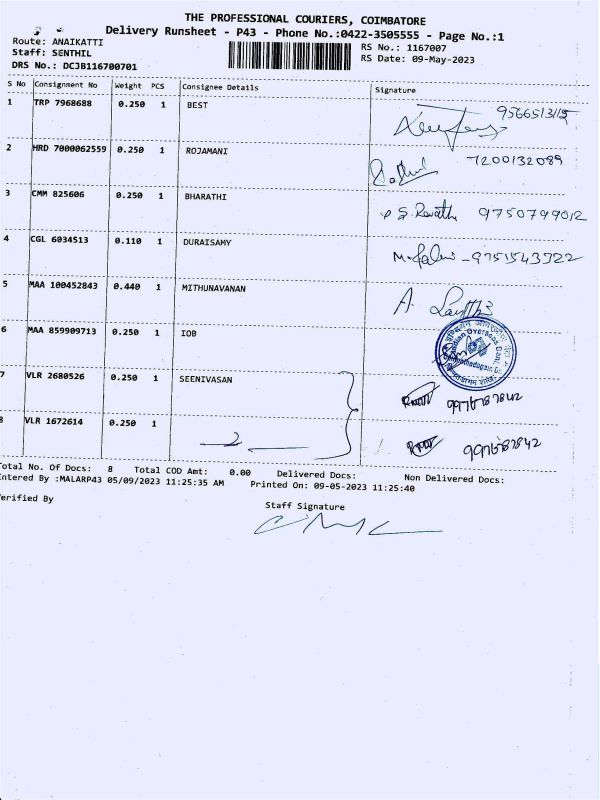 THE PROFESSIONAL COURIERS, COIMBATORE
Delivery Runsheet - P43 - Phone No.:0422-3505555 - Page No.:1
Route: ANAIKATTI
Staff: SENTHIL
DRS No.: DCJB116700701
RS No.: 1167007
RS Date: 09-May-2023
S No Consignment No Weight PCS Consignee Details Signature
1 TRP 7968688 0.250 1 BEST
2 HRD 7000062559 0.250 1 ROJAMANI 7200132089
3 CMM 825606 0.250 1 BHARATHI P S. Revathi 9750799012
4 CGL 6034513 0.110 1 DURAISAMY 9751543722
5 MAA 100452843 0.440 1 MITHUNAVANAN A.
6 MAA 859909713 0.250 1 IOB
7 VLR 2680526 0.250 1 SEENIVASAN 9976787842
8 VLR 1672614 0.250 1 9976787842
Total No. Of Docs: 8 Total COD Amt: 0.00 Delivered Docs: Non Delivered Docs:
Entered By :MALARP43 05/09/2023 11:25:35 AM Printed On: 09-05-2023 11:25:40
Verified By
Staff Signature